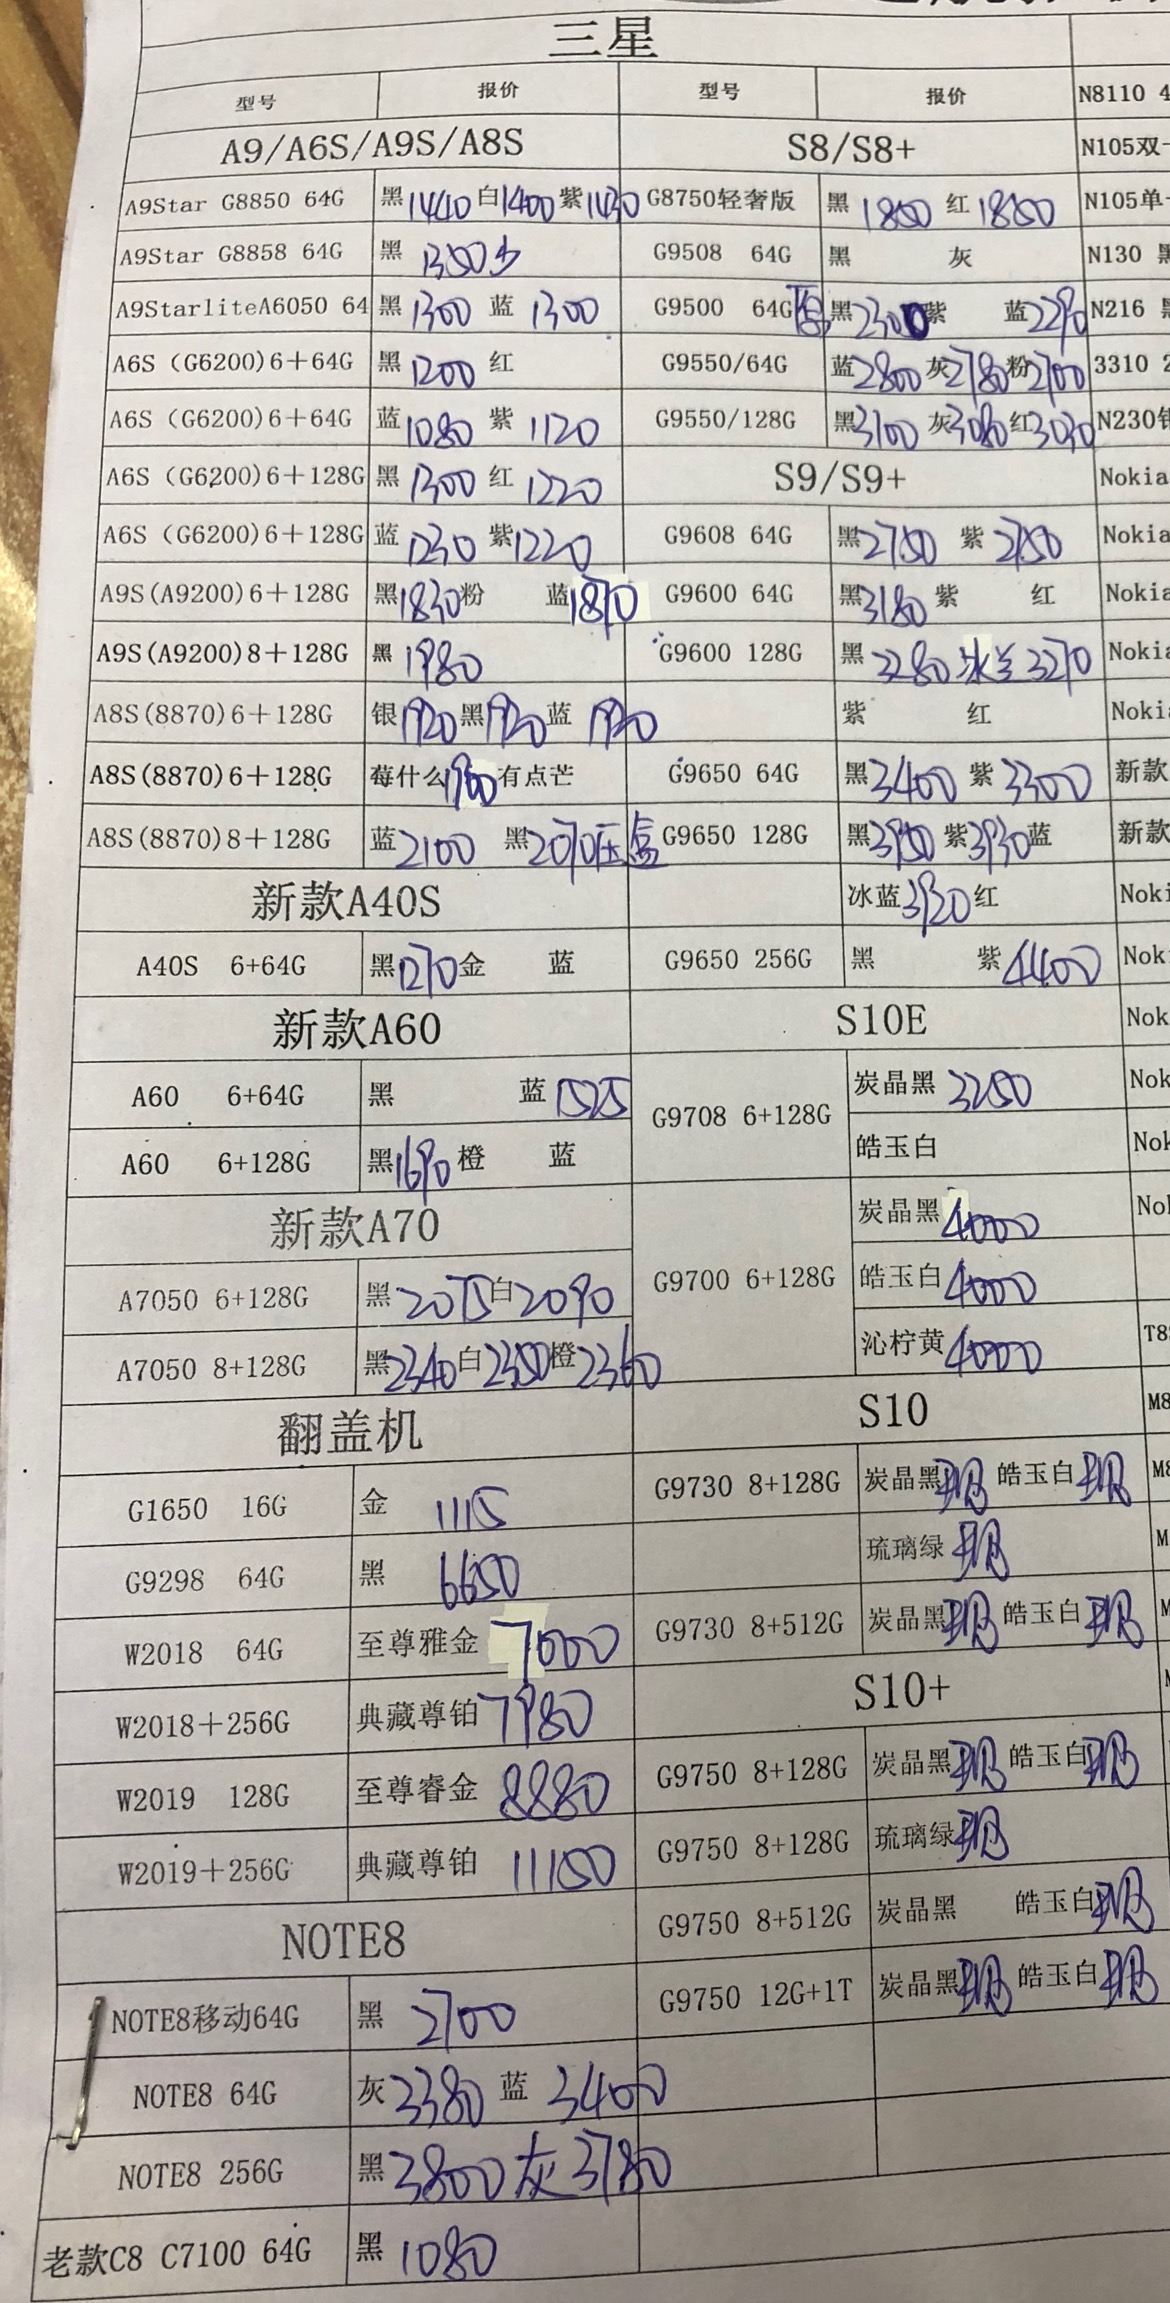 三星
型号 报价 型号 报价 N8110 4
A9/A6S/A9S/A8S S8/S8+ N105双
A9Star G8850 64G 黑1440 白1400 紫1430 G8750轻奢版 黑1800 红1800 N105单
A9Star G8858 64G 黑 1350少 G9508 64G 黑 灰 N130 黑
A9StarliteA6050 64 黑 1300 蓝 1300 G9500 64G 黑2300紫 蓝2290 N216 黑
A6S（G6200)6+64G 黑 1200 红 G9550/64G 蓝2800灰2780粉2700 3310 2
A6S（G6200)6+64G 蓝1080 紫 1120 G9550/128G 黑3100 灰3080红3030 N230银
A6S（G6200)6+128G 黑 1300 红 1220 S9/S9+ Nokia
A6S（G6200)6+128G 蓝 1230 紫1220 G9608 64G 黑2750 紫 2750 Nokia
A9S(A9200)6+128G 黑1830粉 蓝1870 G9600 64G 黑3180 紫 红 Nokia
A9S(A9200)8+128G 黑 1980 G9600 128G 黑 3280 冰兰3270 Nokia
A8S(8870)6+128G 银1920黑1920蓝 1920 紫 红 Noki
A8S(8870)6+128G 莓什么1900有点芒 G9650 64G 黑3400 紫 3300 新款
A8S(8870)8+128G 蓝2100 黑2070压盒 G9650 128G 黑3950 紫3930蓝 新款
新款A40S 冰蓝3920红 Noki
A40S 6+64G 黑1270金 蓝 G9650 256G 黑 紫4400 Nok
新款A60 S10E Nok
A60 6+64G 黑 蓝1525 G9708 6+128G 炭晶黑 3250 Nok
A60 6+128G 黑1690橙 蓝 皓玉白 Nok
新款A70 炭晶黑4000 No
A7050 6+128G 黑2075白2090 G9700 6+128G 皓玉白4000
A7050 8+128G 黑2340白2350橙2360 沁柠黄4000 T8
翻盖机 S10 M8
G1650 16G 金 1115 G9730 8+128G 炭晶黑现 皓玉白现 M8
G9298 64G 黑 6650 琉璃绿现 M
W2018 64G 至尊雅金 7000 G9730 8+512G 炭晶黑现 皓玉白现 M
W2018+256G 典藏尊铂7980 S10+
W2019 128G 至尊睿金 8880 G9750 8+128G 炭晶黑现 皓玉白现
W2019+256G 典藏尊铂 11150 G9750 8+128G 琉璃绿现
NOTE8 G9750 8+512G 炭晶黑 皓玉白现
NOTE8移动64G 黑 2700 G9750 12G+1T 炭晶黑现 皓玉白现
NOTE8 64G 灰3380 蓝 3400
NOTE8 256G 黑3800灰3780
老款C8 C7100 64G 黑 1080